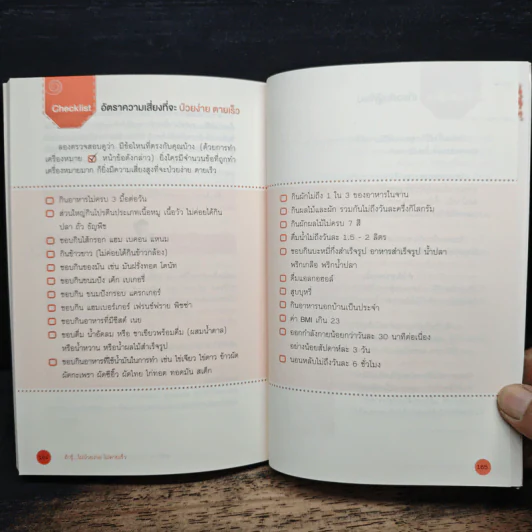 Checklist
อัตราความเสี่ยงที่จะ ป่วยง่าย ตายเร็ว
ลองตรวจสอบดูว่า มีข้อไหนที่ตรงกับคุณบ้าง (ด้วยการทำ
เครื่องหมาย ☑ หน้าข้อดังกล่าว) ยิ่งใครมีจำนวนข้อที่ถูกทำ
เครื่องหมายมาก ก็ยิ่งมีความเสี่ยงสูงที่จะป่วยง่าย ตายเร็ว
กินอาหารไม่ครบ 3 มื้อต่อวัน
ส่วนใหญ่กินโปรตีนประเภทเนื้อหมู เนื้อวัว ไม่ค่อยได้กิน
ปลา ถั่ว ธัญพืช
ชอบกินไส้กรอก แฮม เบคอน แหนม
กินข้าวขาว (ไม่ค่อยได้กินข้าวกล้อง)
ชอบกินของมัน เช่น มันฝรั่งทอด โดนัท
ชอบกินขนมปัง เค้ก เบเกอรี่
ชอบกิน ขนมปังกรอบ แครกเกอร์
ชอบกิน แฮมเบอเกอร์ เฟรนช์ฟราย พิซซ่า
ชอบกินอาหารที่มีชีสต์ เนย
ชอบดื่ม น้ำอัดลม หรือ ชาเขียวพร้อมดื่ม (ผสมน้ำตาล)
หรือน้ำหวาน หรือน้ำผลไม้สำเร็จรูป
ชอบกินอาหารที่ใช้น้ำมันในการทำ เช่น ไข่เจียว ไข่ดาว ข้าวผัด
ผัดกะเพรา ผัดซีอิ๊ว ผัดไทย ไก่ทอด ทอดมัน สเต็ก
กินผักไม่ถึง 1 ใน 3 ของอาหารในจาน
กินผลไม้และผัก รวมกันไม่ถึงวันละครึ่งกิโลกรัม
กินผักผลไม้ไม่ครบ 7 สี
ดื่มน้ำไม่ถึงวันละ 1.5 - 2 ลิตร
ชอบกินบะหมี่กึ่งสำเร็จรูป อาหารสำเร็จรูป น้ำปลา
พริกเกลือ พริกน้ำปลา
ดื่มแอลกอฮอล์
สูบบุหรี่
กินอาหารนอกบ้านเป็นประจำ
ค่า BMI เกิน 23
ออกกำลังกายน้อยกว่าวันละ 30 นาทีต่อเนื่อง
อย่างน้อยสัปดาห์ละ 3 วัน
นอนหลับไม่ถึงวันละ 6 ชั่วโมง
185